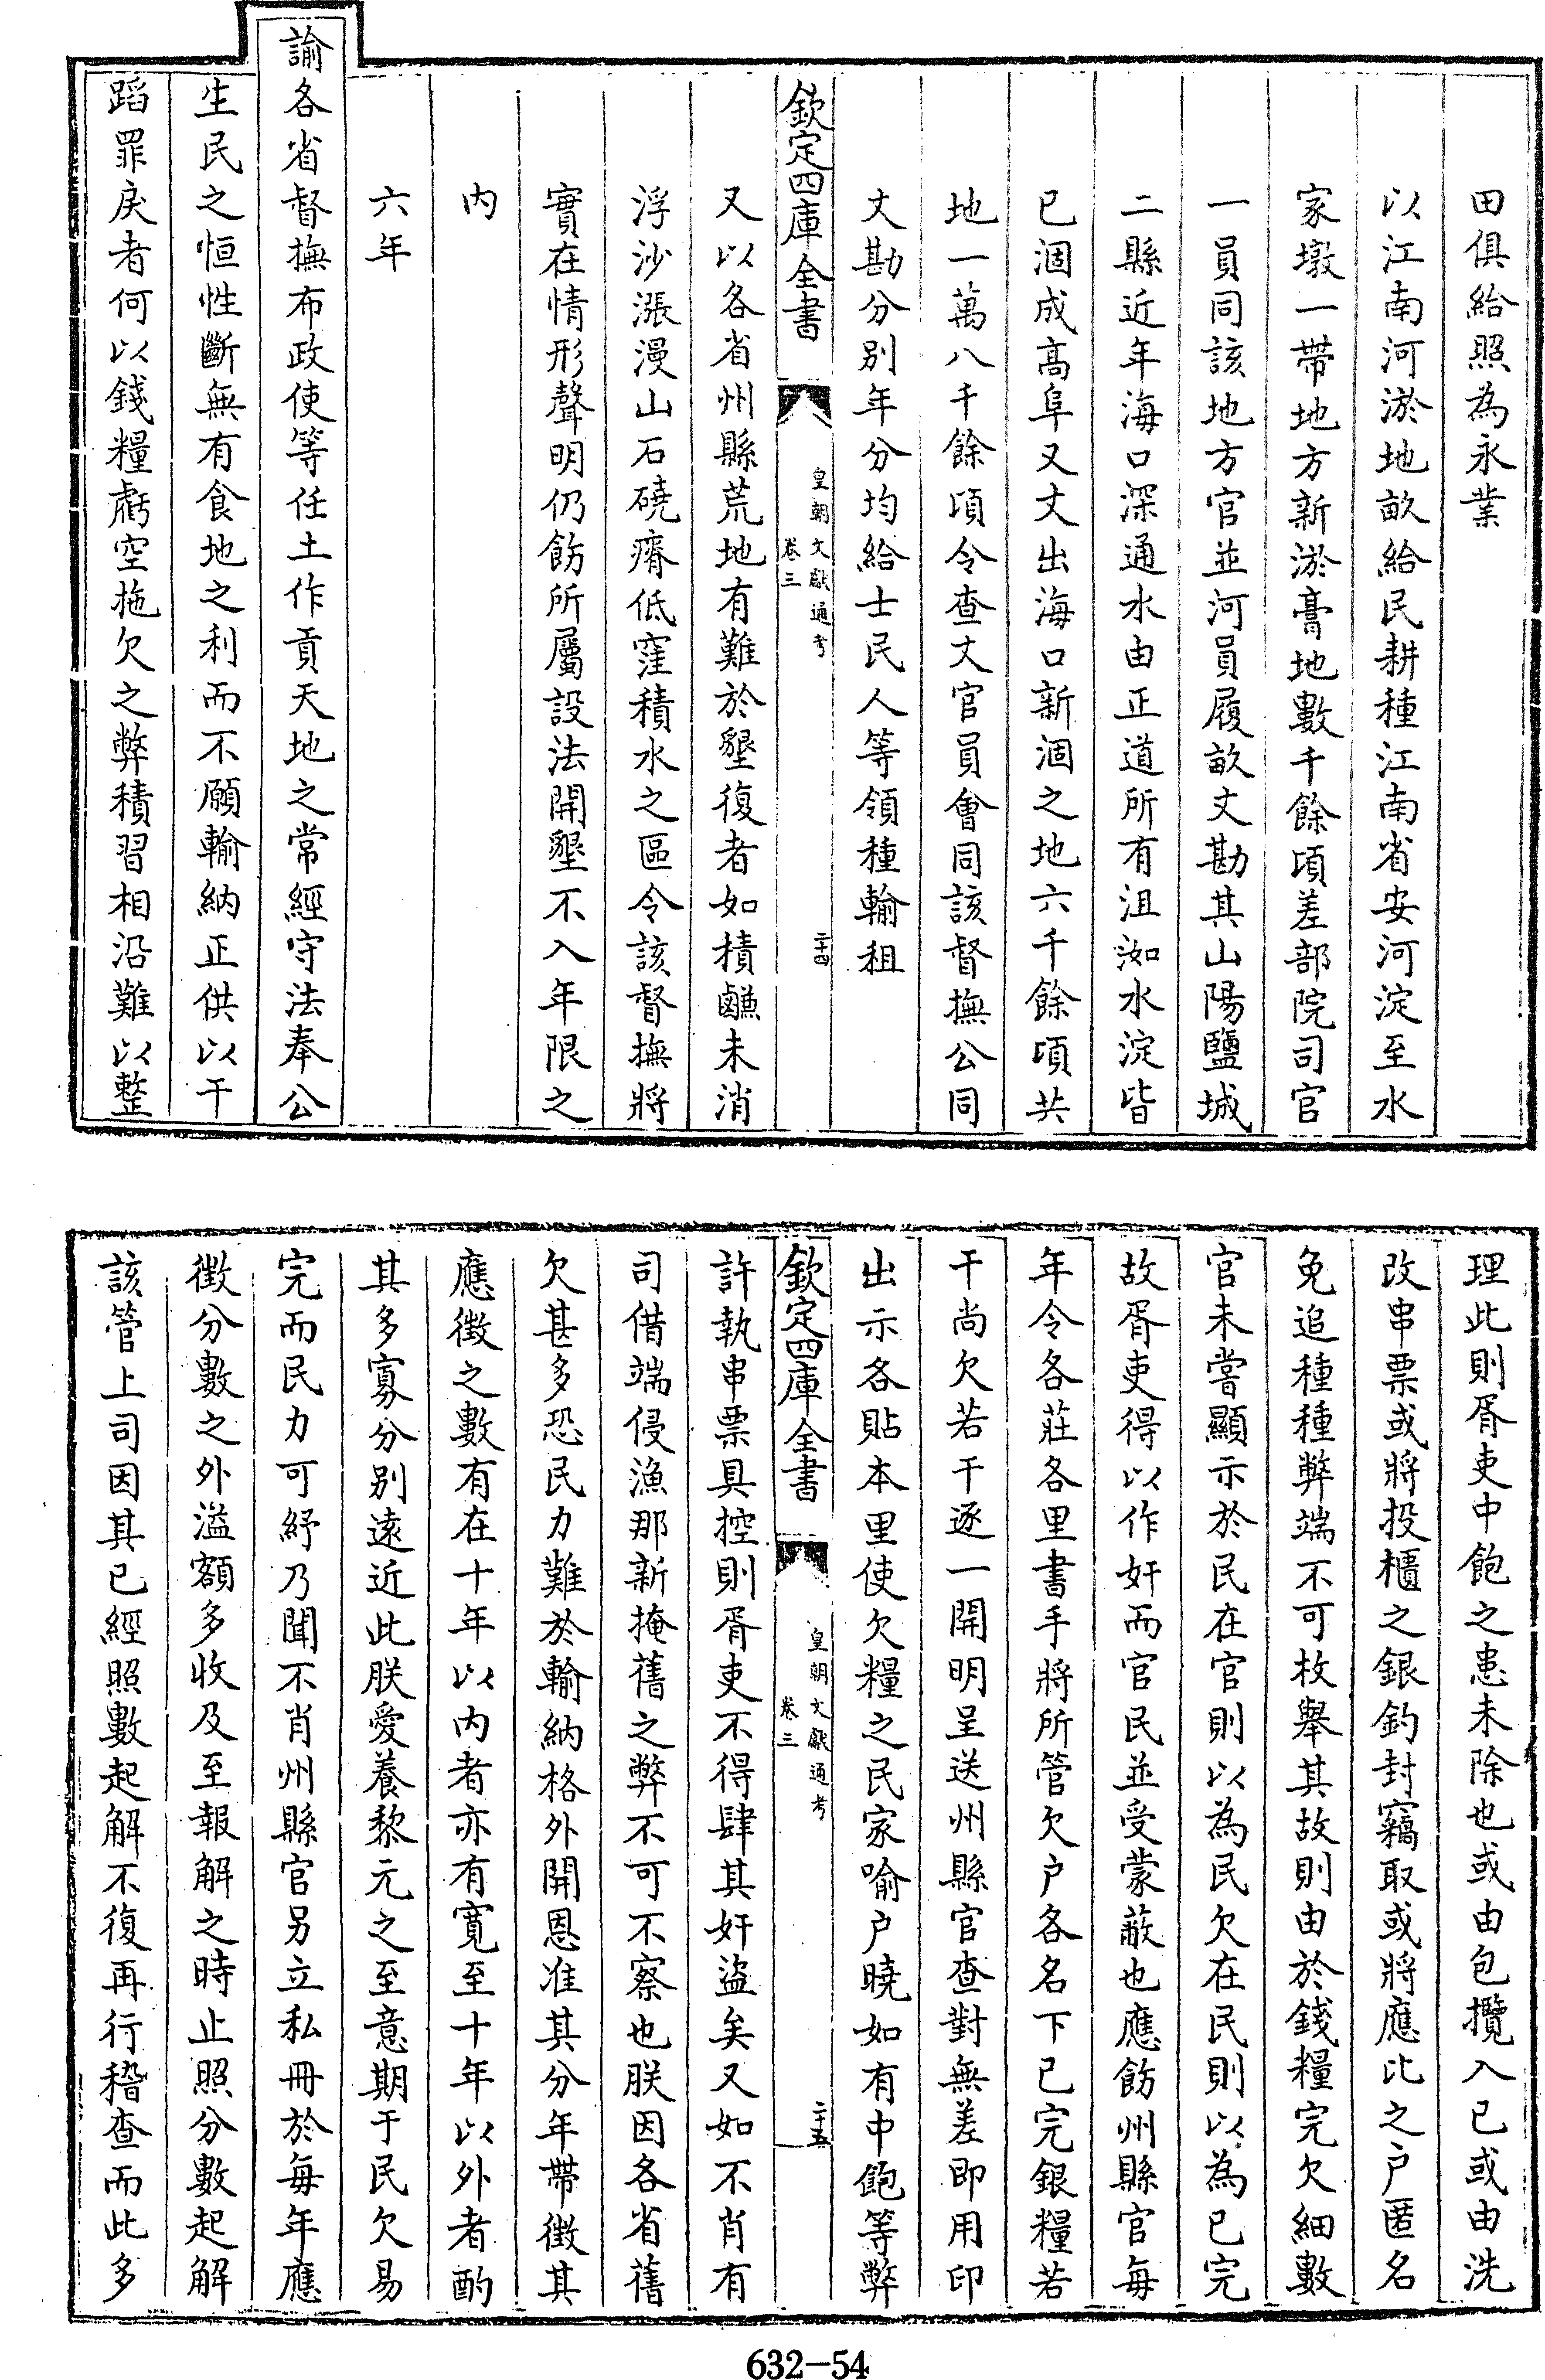 田俱給照為永業
以江南河淤地畝給民耕種江南省安河淀至水
家墩一帶地方新淤膏地數千餘頃差部院司官
一員同該地方官並河員履畝丈勘其山陽鹽城
二縣近年海口深通水由正道所有沮洳水淀皆
已涸成高阜又丈出海口新涸之地六千餘頃共
地一萬八千餘頃令查丈官員會同該督撫公同
丈勘分別年分均給士民人等領種輸租
欽定四庫全書
皇朝文獻通考
卷三
二十四
又以各省州縣荒地有難於墾復者如積鹻未消
浮沙漲漫山石磽瘠低窪積水之區令該督撫將
實在情形聲明仍飭所屬設法開墾不入年限之
内
六年
諭各省督撫布政使等任土作貢天地之常經守法奉公
生民之恒性斷無有食地之利而不願輸納正供以干
蹈罪戾者何以錢糧虧空拖欠之弊積習相沿難以整
理此則胥吏中飽之患未除也或由包攬入已或由洗
改串票或將投櫃之銀鈞封竊取或將應比之户匿名
免追種種弊端不可枚舉其故則由於錢糧完欠細數
官未嘗顯示於民在官則以為民欠在民則以為已完
故胥吏得以作奸而官民並受蒙蔽也應飭州縣官每
年令各莊各里書手將所管欠户各名下已完銀糧若
干尚欠若干逐一開明呈送州縣官查對無差即用印
出示各貼本里使欠糧之民家喻户曉如有中飽等弊
欽定四庫全書
皇朝文獻通考
卷三
二十五
許執串票具控則胥吏不得肆其奸盜矣又如不肖有
司借端侵漁那新掩舊之弊不可不察也朕因各省舊
欠甚多恐民力難於輸納格外開恩准其分年帶徵其
應徵之數有在十年以内者亦有寬至十年以外者酌
其多寡分別遠近此朕愛養黎元之至意期于民欠易
完而民力可紓乃聞不肖州縣官另立私冊於每年應
徵分數之外溢額多收及至報解之時止照分數起解
該管上司因其已經照數起解不復再行稽查而此多
632-54